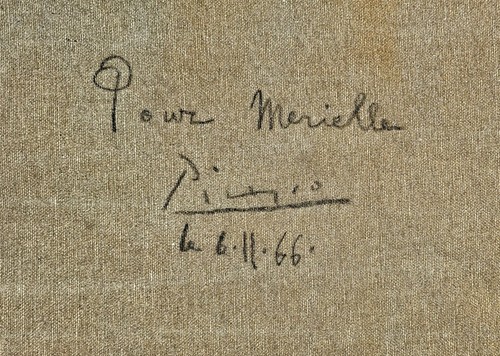 Pour Merielle
Picasso
le 6.11.66.